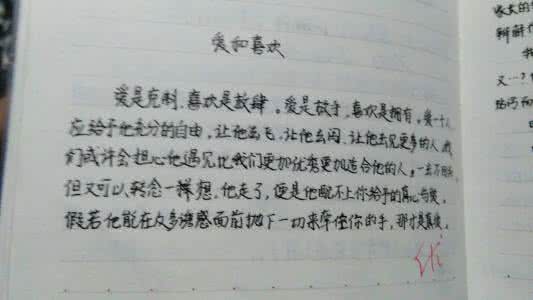 爱和喜欢
爱是克制,喜欢是放肆。爱是放手,喜欢是拥有。爱一个人
应给予他充分的自由,让他去飞,让他去闯,让他去见更多的人,我
们或许会担心他遇见比我们更加优秀更加适合他的人,一去不回头
但又可以转念一样想,他走了,便是他配不上你给予的真心与爱,
假若他能在众多诱惑面前抛下一切来牵住你的手,那才是真爱。
优
家长的
辩解
又…?